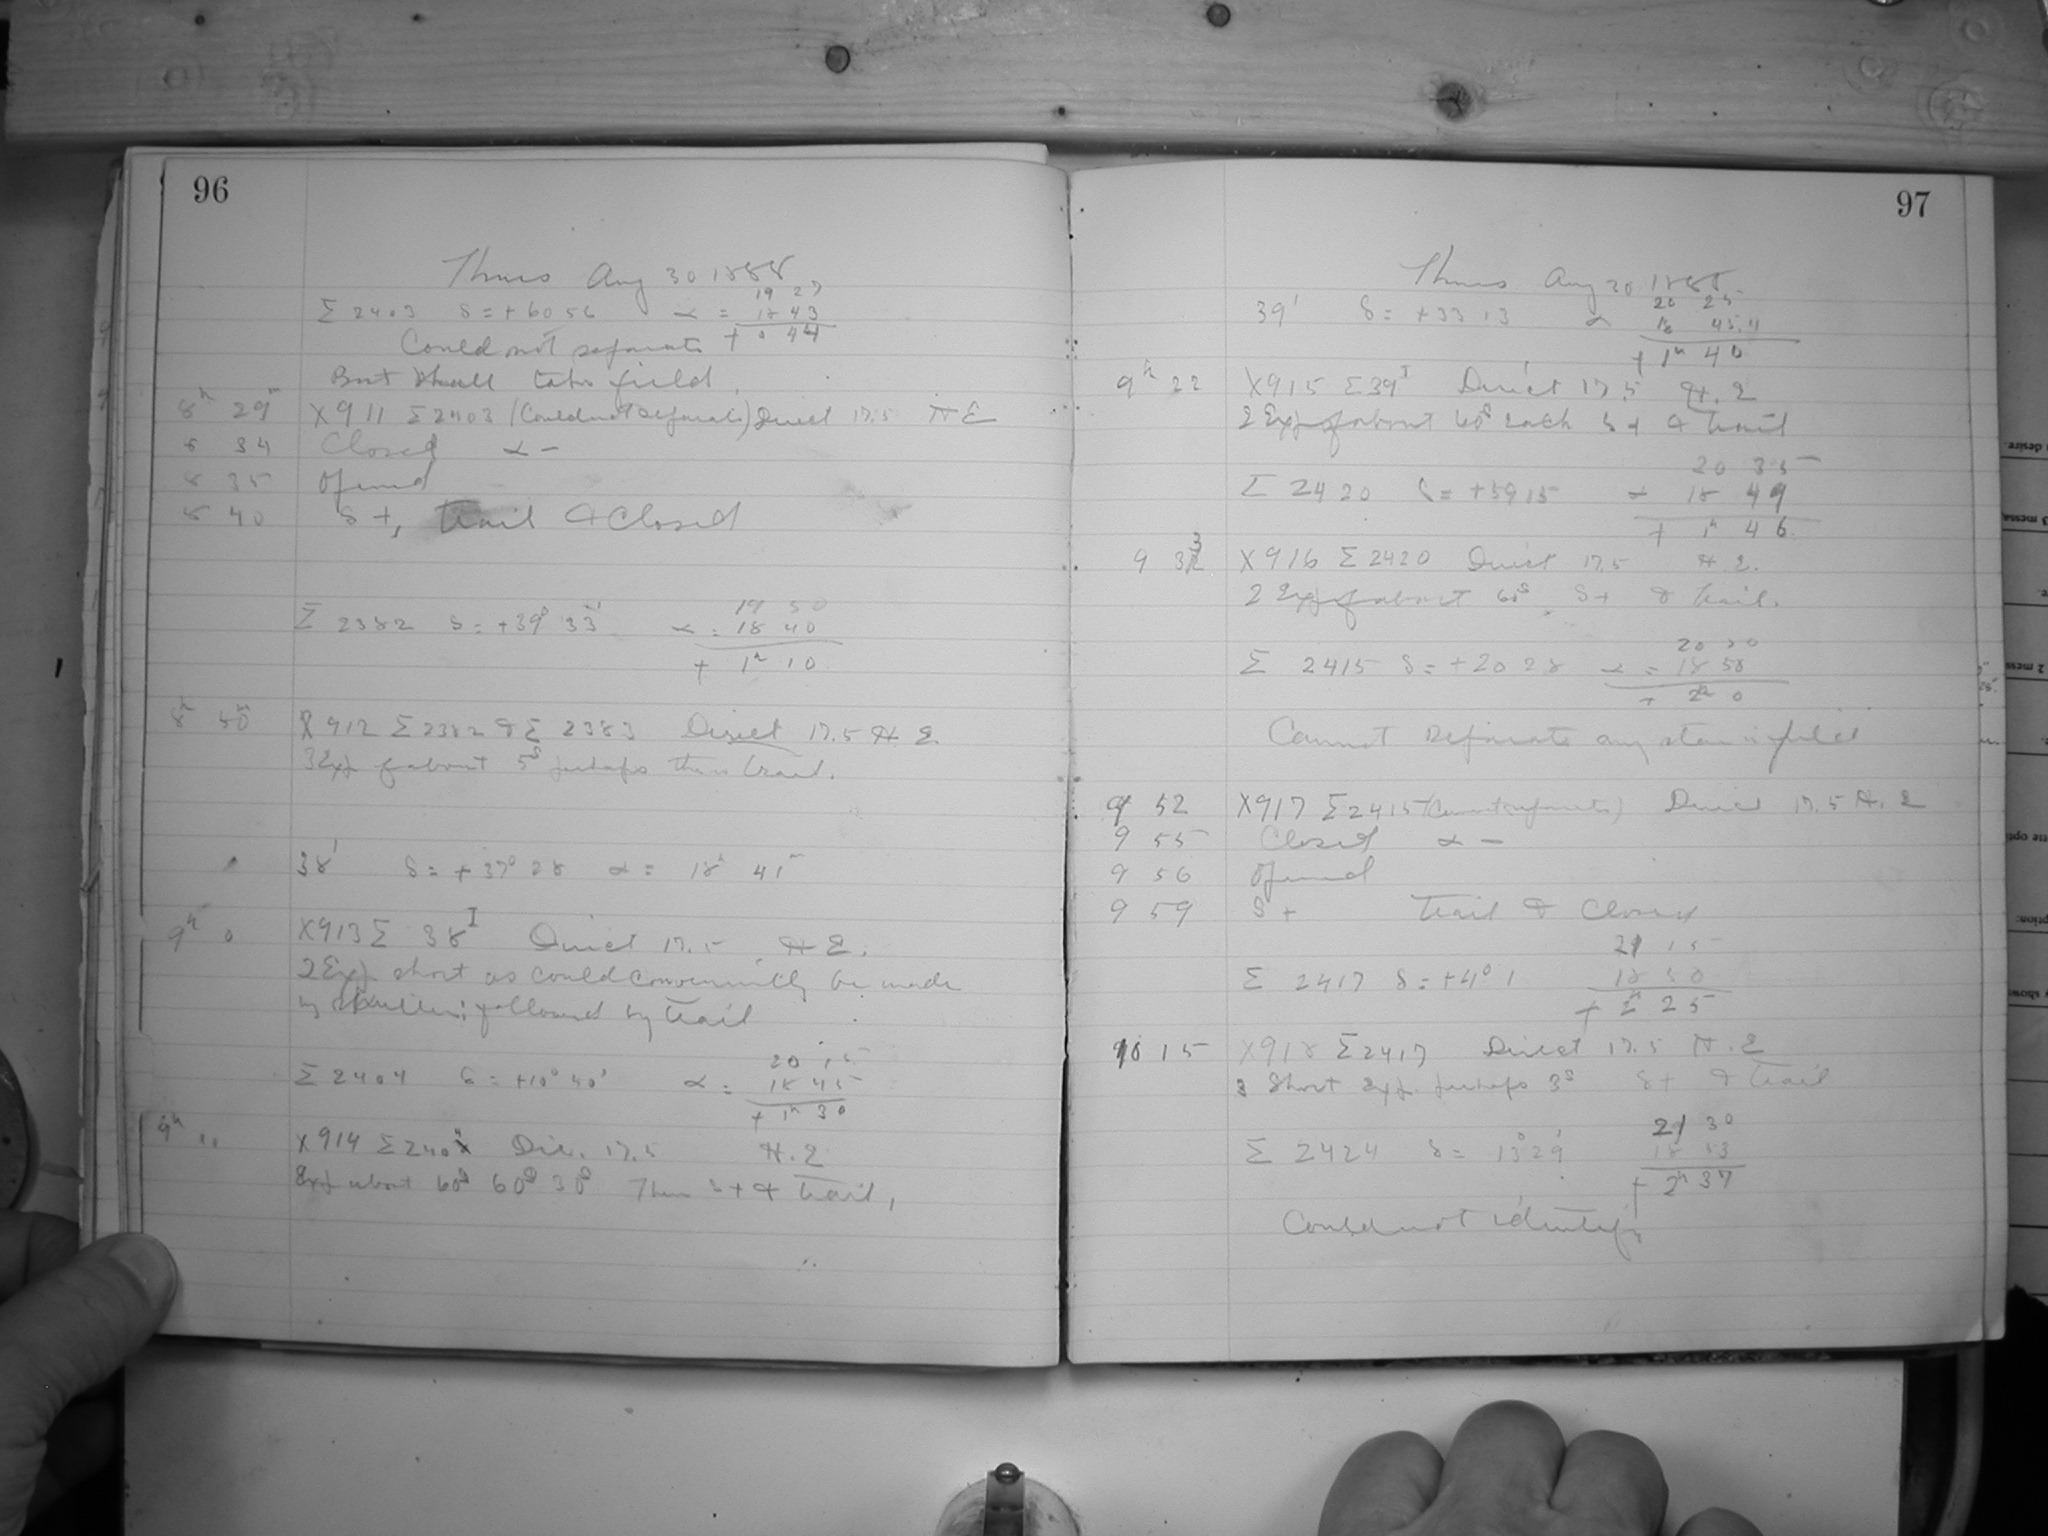 96
Thurs Aug 30 1888
19 27
Σ 2403 δ = + 60 56 α = 18 43
Could not separate + 0 44
But shall take field.
8h 29m X911 Σ2403 (Could not separate) Direct 17.5 H E
8 34 Closed α -
8 35 Opened
8 40 δ +, trail & Closed
19 50
Σ 2382 δ = +39° 33' α = 18 40
+ 1h 10
8h 50m X912 Σ2382 & Σ 2383 Direct 17.5 H E.
3 Exp of about 5s perhaps then trail.
38' δ = + 37° 28 α = 18h 41
9h 0 X913 Σ 38I Direct 17.5 H E.
2 Exp. short as could conveniently be made
by shutter; followed by trail
20 15
Σ 2404 δ = +10° 50' α = 18 45
+ 1h 30
9h 11 X914 Σ2404 Dir. 17.5 H. E
Exp about 60s 60s 30s Then δ + & trail,
97
Thurs Aug 30 1888
20 25
39' δ = +33 13 α 18 45.4
+ 1h 40
9h 22 X915 Σ39I Direct 17.5 H. E
2 Exp of about 60s each δ + & trail
20 35
Σ 2420 δ = +59 15 α 18 49
+ 1h 46.
9 33 X916 Σ2420 Direct 17.5 H. E.
2 Exp of about 60s. δ + & trail.
20 50
Σ 2415 δ = +20 28 α = 18 50
+ 2h 0
Cannot separate any star in field
9 52 X917 Σ2415 (Cannot separate) Direct 17.5 H. E
9 55 Closed α -
9 56 Opened
9 59 δ + trail & Closed
21 15
Σ 2417 δ = +4° 1 18 50
+ 2h 25
10 15 X918 Σ2417 Direct 17.5 H. E
3 Short Exp. perhaps 3s δ + & trail
21 30
Σ 2424 δ = 13° 29' 18 53
+ 2h 37
Could not identify